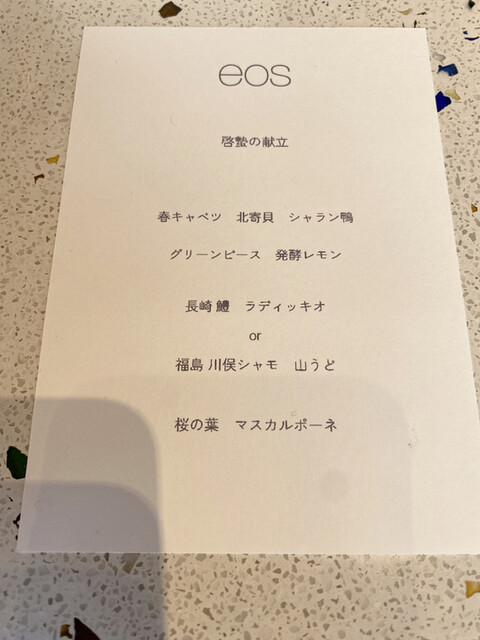 eos
啓蟄の献立
春キャベツ 北寄貝 シャラン鴨
グリーンピース 発酵レモン
長崎 鱧 ラディッキオ
or
福島 川俣シャモ 山うど
桜の葉 マスカルポーネ